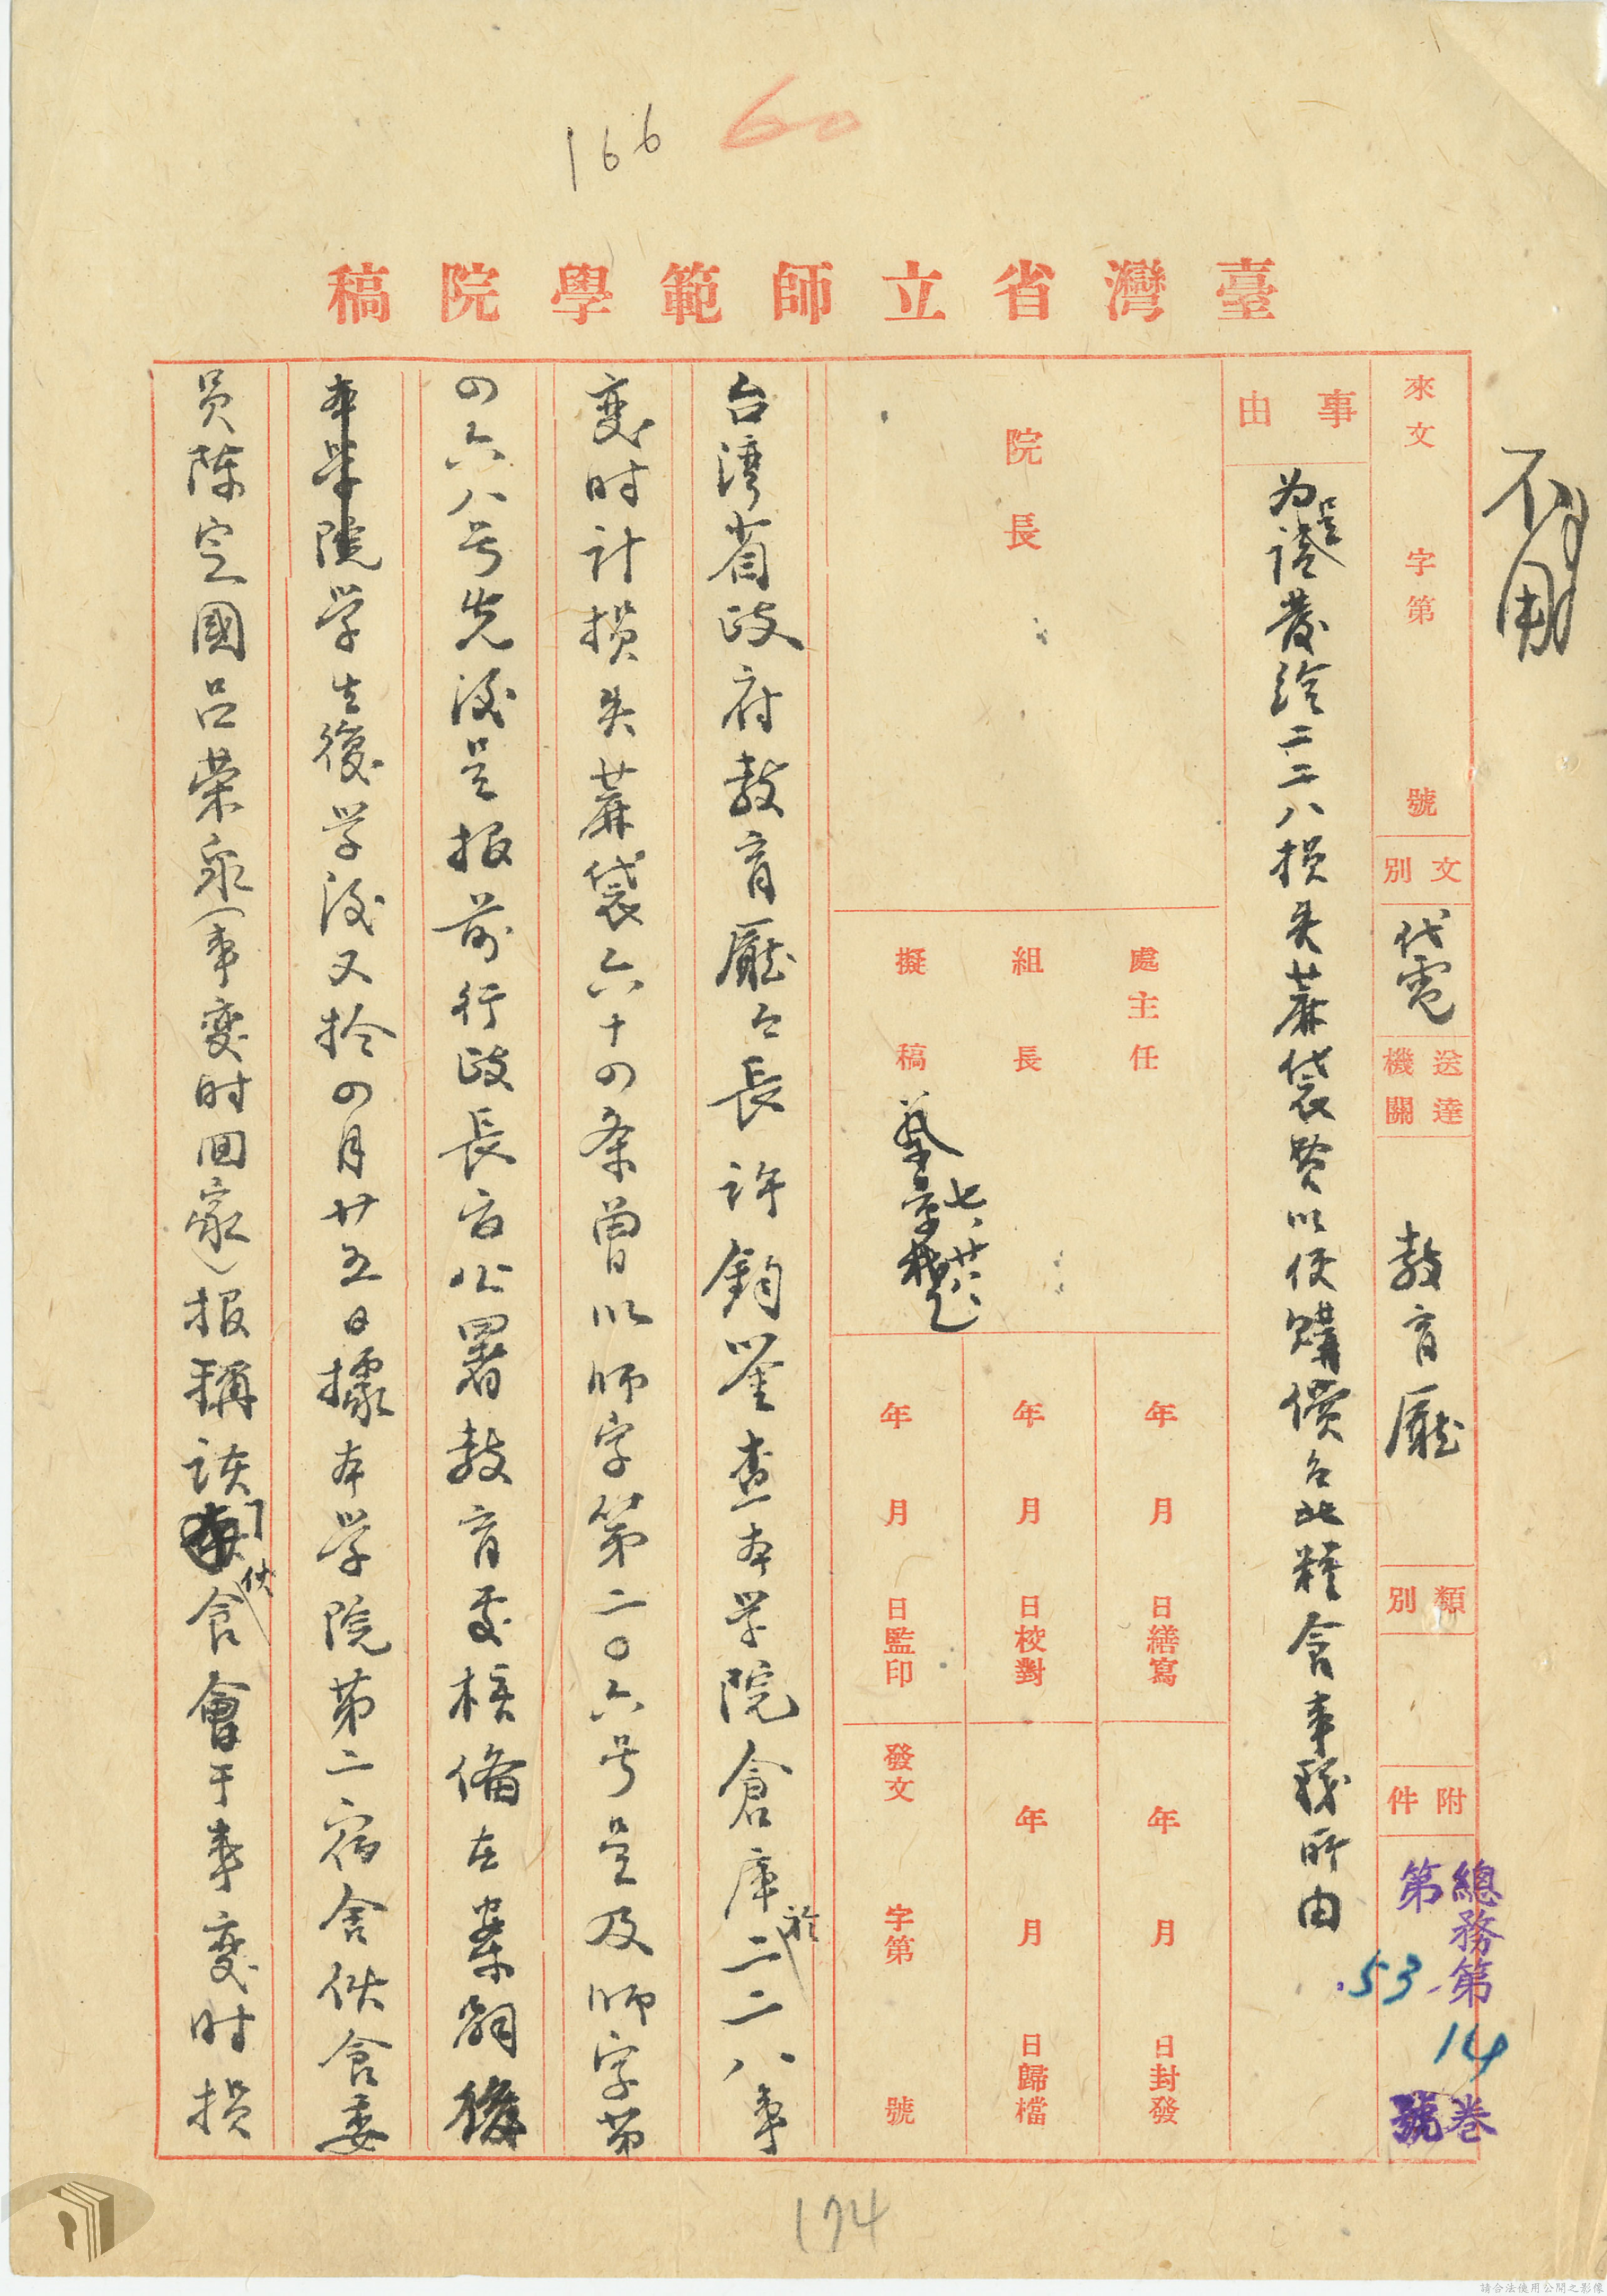 166
60
臺灣省立師範學院稿
不用
來文 字第 號
文別
代電
送達機關
教育廳
類別
附件
總務第14卷
第53號
事由
為呈請發給二二八損失蔴袋費以便購償台北糧食事務所由
院長
處主任
組長
擬稿
七、廿二、
年 月 日繕寫
年 月 日校對
年 月 日監印
年 月 日封發
年 月 日歸檔
發文 字第 號
台湾省政府教育廳廳長許鈞鑒查本学院倉庫於二二八事
変时计損失蔴袋六十四条曾以师字第二〇六号呈及师字第
四六八号先後呈报前行政長官公署教育處核備在案嗣後
本学院学生復学後又於四月廿五日據本学院第二宿舍伙食委
员陈定國呂荣泉(事変时回家)报稱該伙食會于事变时损
174
請合法使用公開之影像